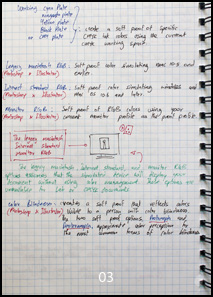 Working Cyan Plate
Magenta Plate
Yellow Plate
Black Plate
or CMY Plate
: create a soft proof of specific
CMYK ink colors using the current
CMYK working space
Legacy Macintosh RGB : Soft proof color simulating mac os 9 and
(Photoshop & Illustrator) earlier
Internet Standard RGB : Soft proof color simulating windows and
(Photoshop & Illustrator) mac os 10.6 and later
Monitor RGB : Soft proof of RGB colors using your
(Photoshop & Illustrator) current monitor profile as the proof profile.
The legacy macintosh
Internet standard
monitor RGB
The legacy macintosh, internet standard, and monitor RGB
options assumes that the simulated device will display your
document without using color management. These options are
unavailable for Lab or CMYK documents
color blindness : creates a soft proof that reflects colors
(Photoshop & Illustrator) visible to a person with color blindness.
The two soft proof options, Protanopia and
Deuteranopia, approximate color perception for
the most common forms of color blindness
03